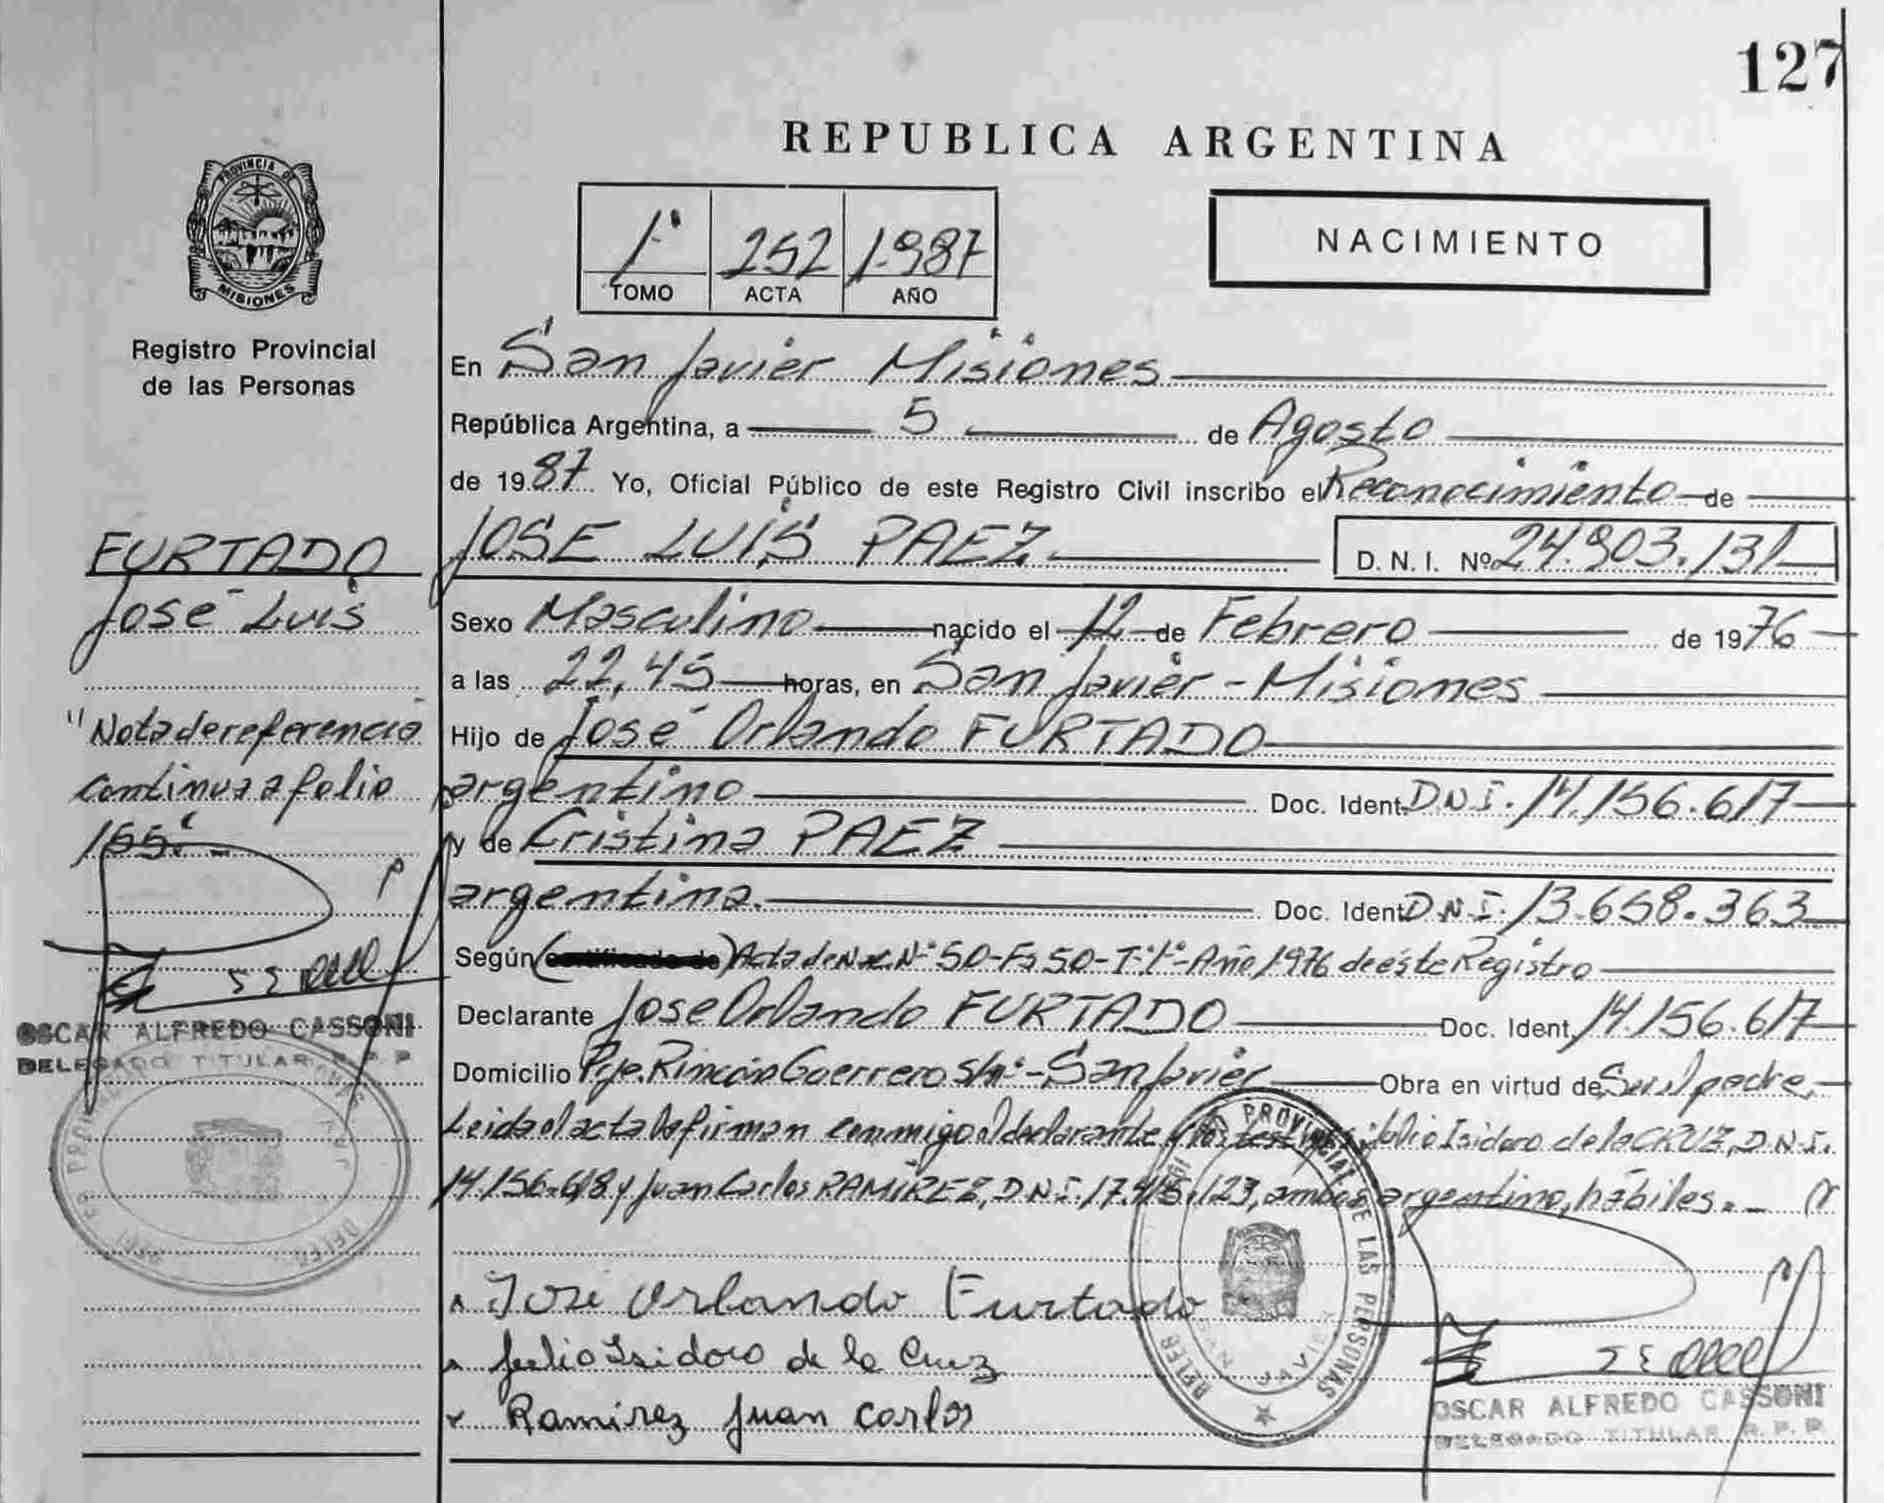 127
REPUBLICA ARGENTINA
PROVINCIA D
MISIONES
Registro Provincial
de las Personas
1º 252 1.987
TOMO ACTA AÑO
NACIMIENTO
En San Javier Misiones
República Argentina, a 5 de Agosto
de 1987 Yo, Oficial Público de este Registro Civil inscribo el Reconocimiento de
JOSE LUIS PAEZ D. N. I. Nº 24.903.131
Sexo Masculino nacido el 12 de Febrero de 1976
a las 22,45 horas, en San Javier - Misiones
Hijo de José Orlando FURTADO
argentino Doc. Ident. D.N.I. 14.156.617
y de Cristina PAEZ
argentina. Doc. Ident D.N.I. 13.658.363
Según (certificado de) Acta de Nac. Nº 50-Fs 50-T.1º-Año 1976 de éste Registro
Declarante Jose Orlando FURTADO Doc. Ident. 14.156.617
Domicilio Pje. Rincón Guerrero s/nº - San Javier Obra en virtud de Ser el padre.
Leida el acta la firman conmigo el declarante y los testigos Julio Isidoro de la CRUZ, D.N.I.
14.156.618 y Juan Carlos RAMIREZ, D.N.I. 17.415.123, ambos argentino, hábiles.-
José Orlando Furtado
Julio Isidoro de la Cruz
Ramirez Juan Carlos
OSCAR ALFREDO CASSONI
DELEGADO TITULAR R. P. P.
PROVINCIAL DE LAS PERSONAS
SAN JAVIER
FURTADO
José Luis
"Nota de referencia
continua a folio
155.-
OSCAR ALFREDO CASSONI
DELEGADO TITULAR R. P. P.